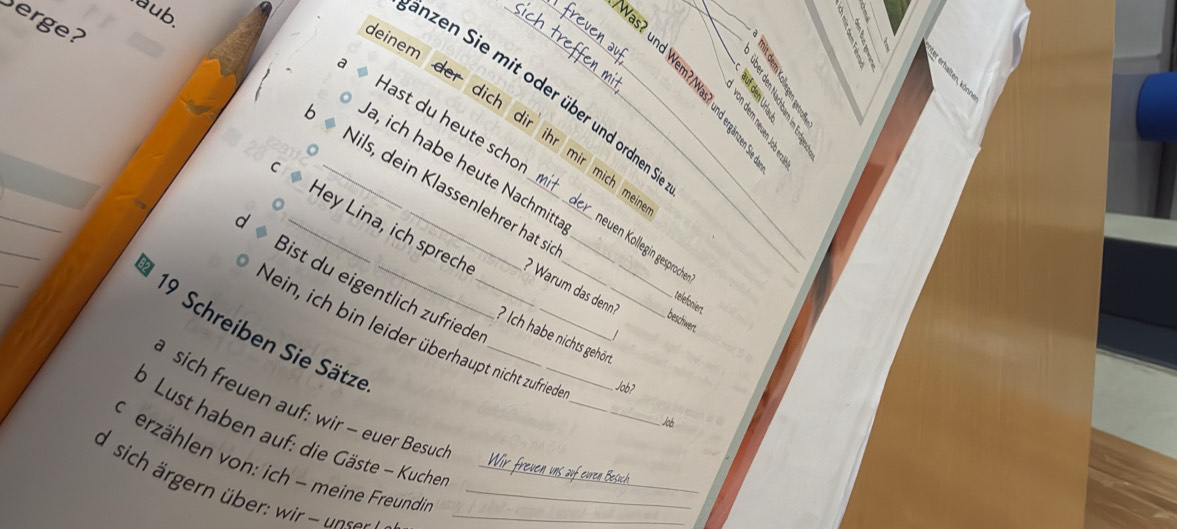 erge?
aub.
freuen auf,
sich treffen mit,
Was? und Wem?/Was? und ergänzen Sie dann.
a mit dem Kollegen getroffen?
b über den Nachbarn im Erdgeschoss.
c auf den Urlaub.
d von dem neuen Job erzählt.
rgänzen Sie mit oder über und ordnen Sie zu.
deinem der dich dir ihr mir mich meinem
a Hast du heute schon mit der neuen Kollegin gesprochen?
Ja, ich habe heute Nachmittag ____ ____ telefoniert.
b Nils, dein Klassenlehrer hat sich ____ ____ beschwert.
____ ____ ? Warum das denn?
c Hey Lina, ich spreche ____ ____ !
____ ____ ? Ich habe nichts gehört.
d Bist du eigentlich zufrieden ____ ____ Job?
Nein, ich bin leider überhaupt nicht zufrieden ____ ____ Job.
B2 19 Schreiben Sie Sätze.
a sich freuen auf: wir – euer Besuch Wir freuen uns auf euren Besuch.
b Lust haben auf: die Gäste – Kuchen
c erzählen von: ich – meine Freundin
d sich ärgern über: wir – unser